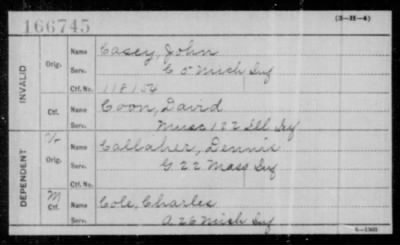 166745
(3-H-4)
INVALID
Orig.
Name Casey, John
Serv. G 5 Mich Inf
Ctf. No. 118154
Ctf.
Name Coon, David
Serv. Musc 122 Ill Inf
DEPENDENT
Orig.
Name Gallaher, Dennis
Serv. G 22 Mass Inf
Ctf. No.
M
Ctf.
Name Cole, Charles
Serv. A 26 Mich Inf